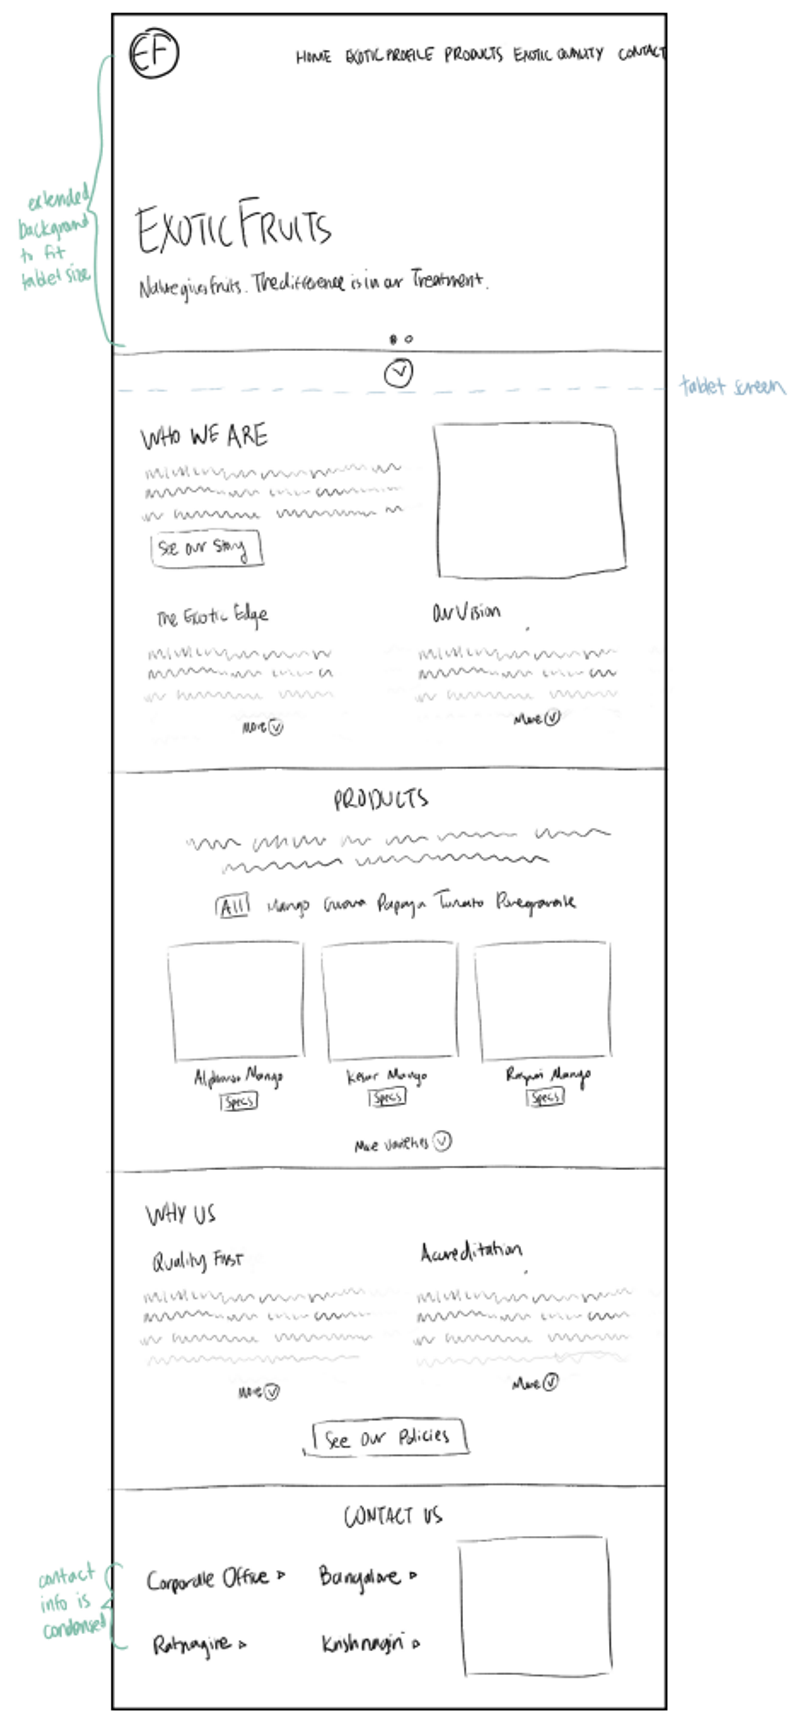 EF
HOME EXOTIC PROFILE PRODUCTS EXOTIC QUALITY CONTACT
extended
background
to fit
tablet size
EXOTIC FRUITS
Nature gives fruits. The difference is in our Treatment.
tablet screen
WHO WE ARE
See our Story
The Exotic Edge
Our Vision
More
More
PRODUCTS
All Mango Guava Papaya Tomato
Alphonso Mango
Kesar Mango
Mango
Specs
Specs
Specs
More Varieties
WHY US
Quality First
Accreditation
More
More
See Our Policies
CONTACT US
contact
info is
condensed
Corporate Office
Bangalore
Ratnagire
Krishnagiri